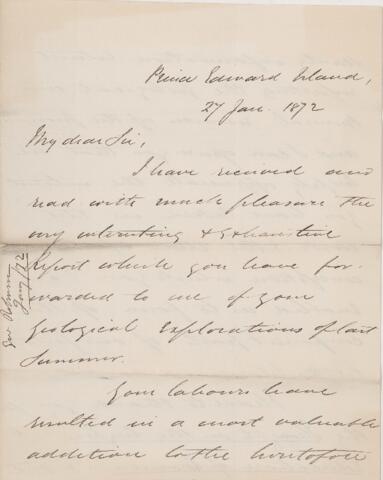 Prince Edward Island,
27 Jan. 1872
My dear Sir,
I have received and
read with much pleasure the
very interesting & exhaustive
Report which you have for-
warded to me of your
Geological Explorations of last
Summer.
Your labours have
resulted in a most valuable
addition to the heretofore
Gov Robinson
Jany/72